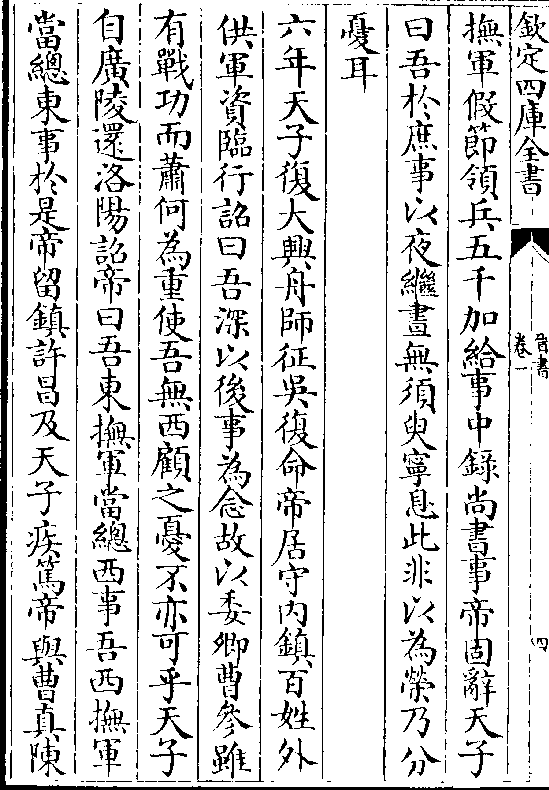 欽定四庫全書
晉書
卷一
四
撫軍假節領兵五千加給事中錄尚書事帝固辭天子
曰吾於庶事以夜繼晝無須臾寧息此非以為榮乃分
憂耳
六年天子復大興舟師征吳復命帝居守内鎮百姓外
供軍資臨行詔曰吾深以後事為念故以委卿曹參雖
有戰功而蕭何為重使吾無西顧之憂不亦可乎天子
自廣陵還洛陽詔帝曰吾東撫軍當總西事吾西撫軍
當總東事於是帝留鎮許昌及天子疾篤帝與曹真陳